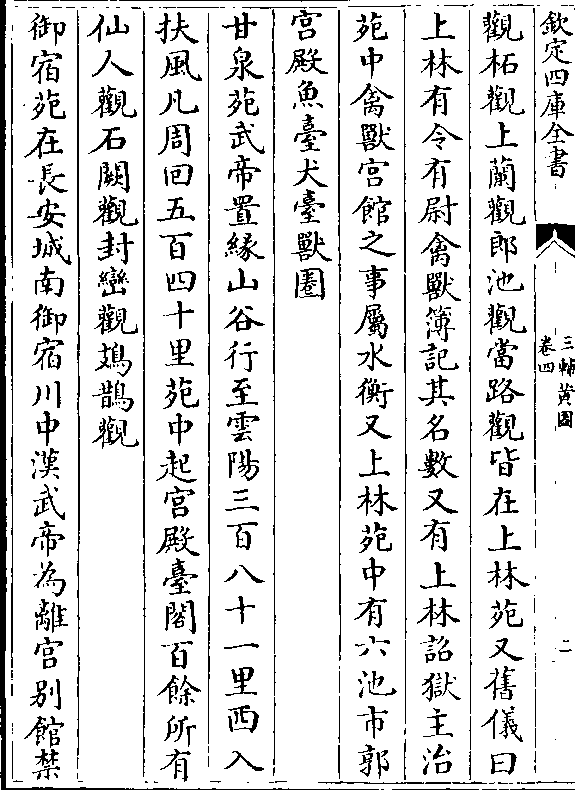 欽定四庫全書
三輔黃圖
卷四
二
觀柘觀上蘭觀郎池觀當路觀皆在上林苑又舊儀曰
上林有令有尉禽獸簿記其名數又有上林詔獄主治
苑中禽獸宮館之事屬水衡又上林苑中有六池市郭
宮殿魚臺犬臺獸圈
甘泉苑武帝置縁山谷行至雲陽三百八十一里西入
扶風凡周回五百四十里苑中起宮殿臺閣百餘所有
仙人觀石闕觀封巒觀鳷鵲觀
御宿苑在長安城南御宿川中漢武帝為離宮别館禁